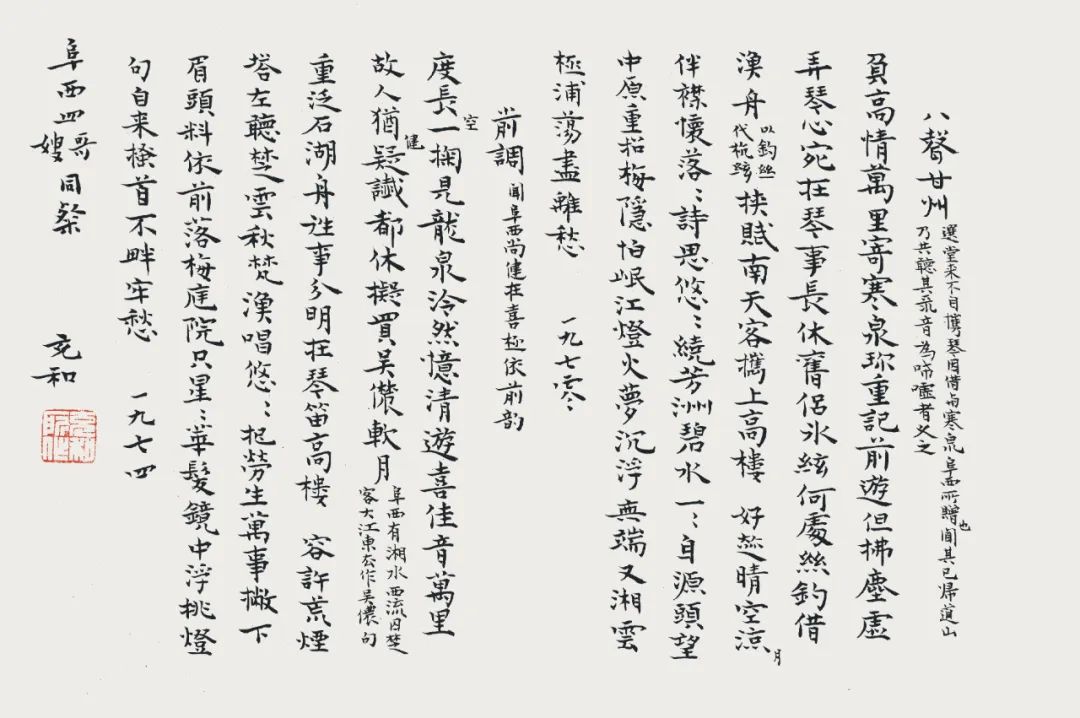 八聲甘州
選堂來不自攜琴因借與寒泉阜西所贈也聞其已歸道山
乃共聽其飛音為唏噓者久之
負高情萬里寄寒泉珍重記前遊但拂塵虛
弄琴心宛在琴事長休舊侶冰絃何處絲釣借
漁舟以釣絲代梳絃挾賦南天客攜上高樓 好趁晴空涼月
伴襟懷落〻詩思悠〻繞芳洲碧水一〻自源頭望
中原重招梅隱怕岷江燈火夢沉浮無端又湘雲
極浦蕩盡離愁 一九七零
前調 聞阜西尚健在喜極依前韵
度長空一掬見龍泉泠然憶清遊喜佳音萬里
故人猶健疑讖都休擬買吳儂軟月
阜西有湘水西流因楚
客大江東去作吳儂句
重泛石湖舟往事分明在琴笛高樓 容許荒煙
塔左聽楚雲秋梵漁唱悠〻把勞生萬事撇下
眉頭料依前落梅庭院只星〻華髮鏡中浮挑燈
句自來搔首不畔牢愁 一九七四
阜西四哥嫂同粲
充和